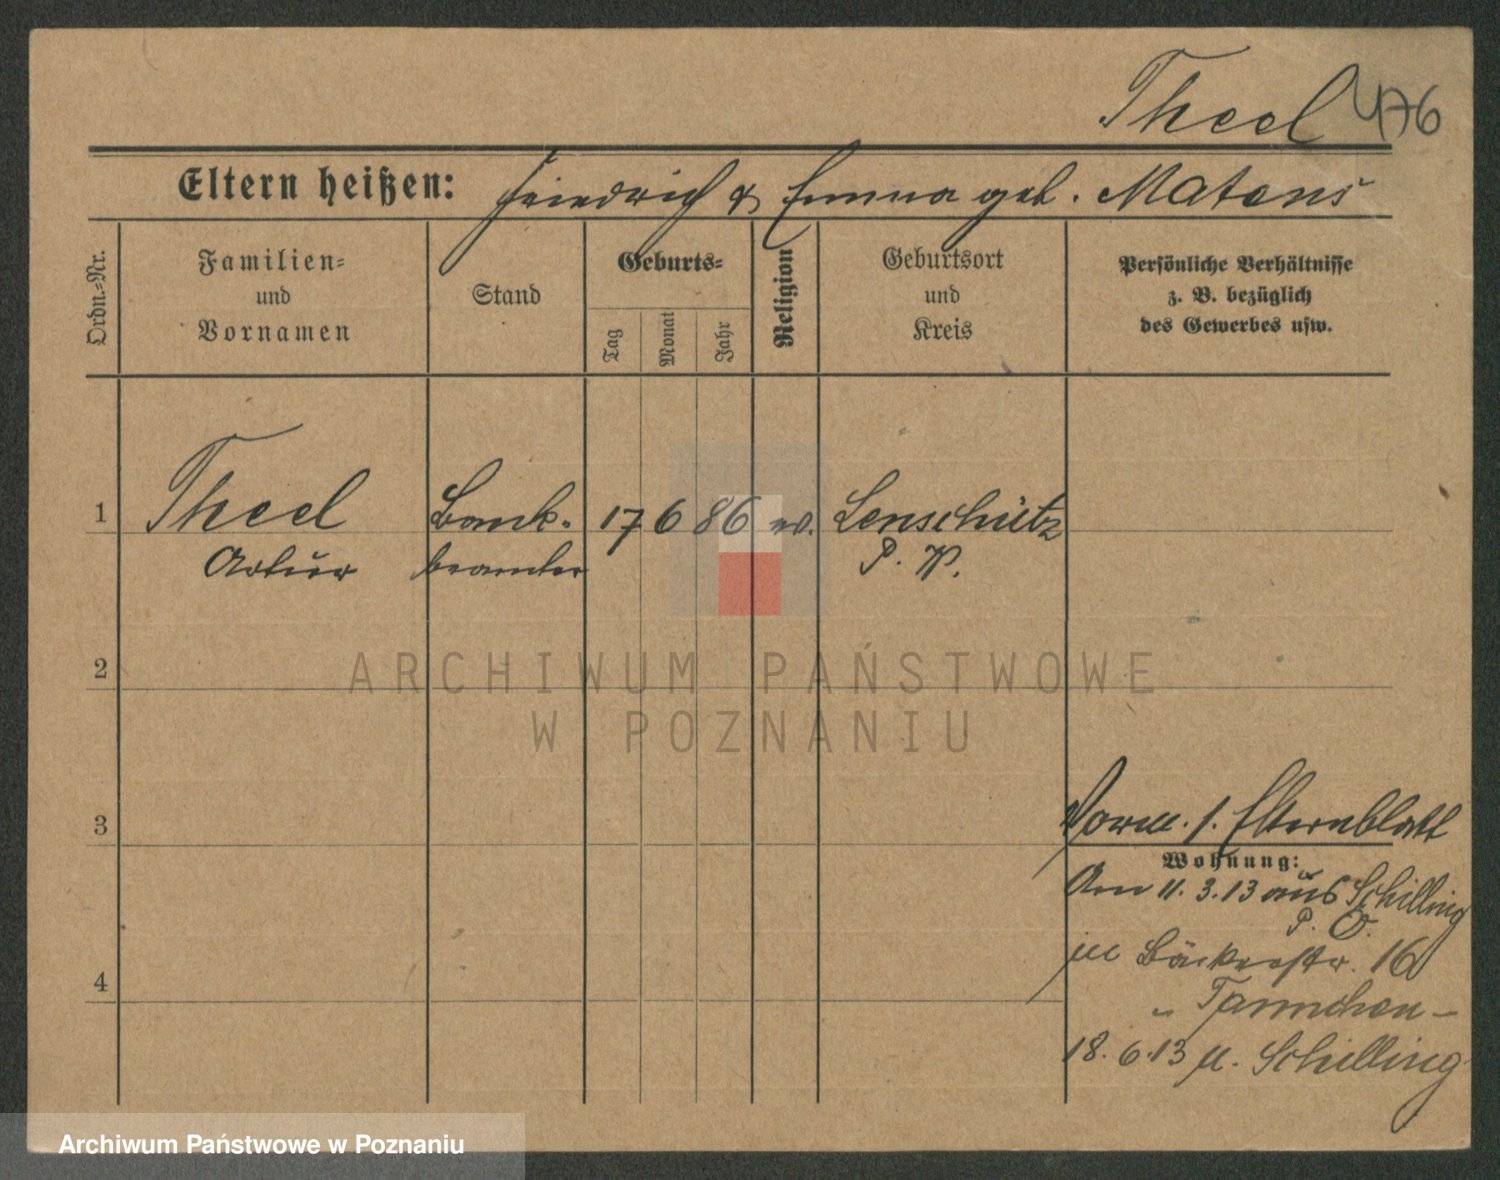 Theel 476
Eltern heißen: Friedrich & Emma geb. Matens
Ordn.-Nr.
Familien-
und
Vornamen
Stand
Geburts-
Tag
Monat
Jahr
Religion
Geburtsort
und
Kreis
Persönliche Verhältnisse
z. B. bezüglich
des Gewerbes usw.
1 Theel Bank- 17 6 86 ev. Lenschütz
Artur beamter P. W.
2
3
Vorm. s. Elternblatt
Wohnung:
Am 11.3.13 aus Schilling
P. O.
in Bäckerstr. 16
4
" Tannchen-
18.6.13 n. Schilling
ARCHIWUM PAŃSTWOWE
W POZNANIU
Archiwum Państwowe w Poznaniu